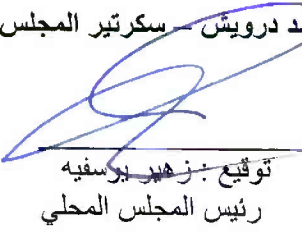 د درويش – سكرتير المجلس
توقيع : زهير يوسفيه
رئيس المجلس المحلي